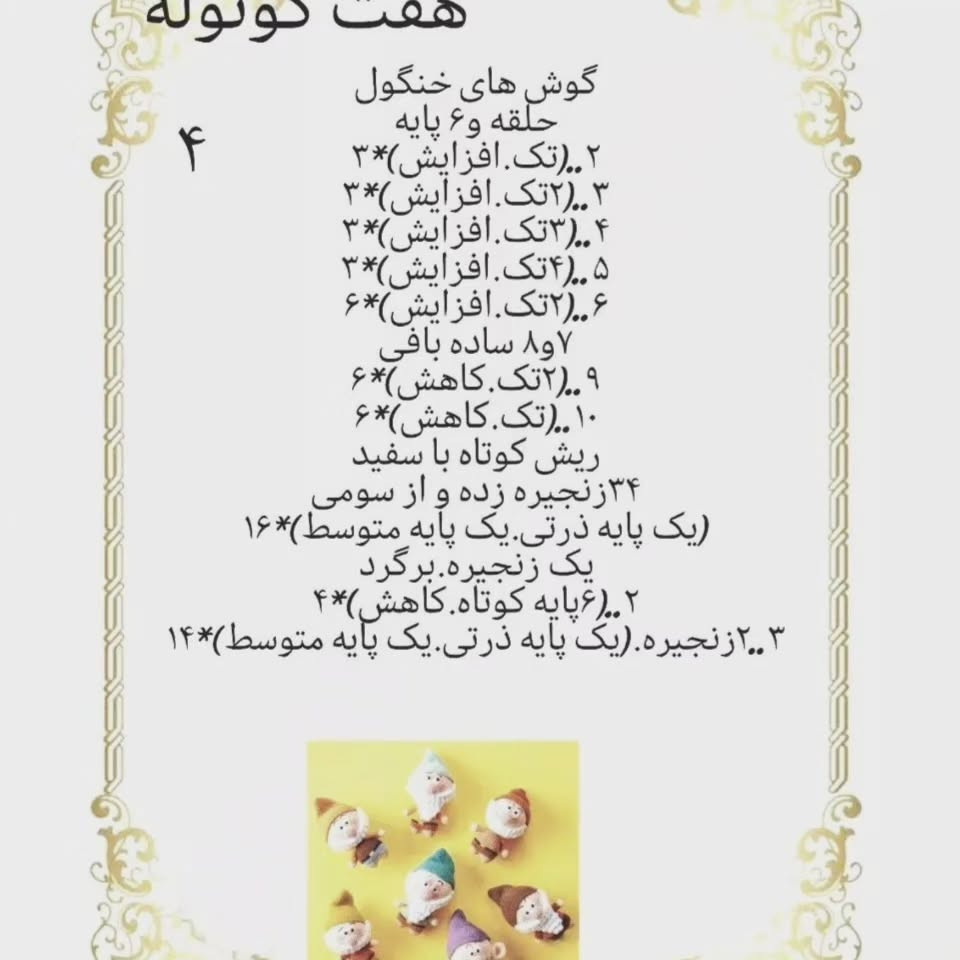 هفت کوتوله
۴
گوش های خنگول
حلقه و۶ پایه
۲..(تک.افزایش)*۳
۳..(۲تک.افزایش)*۳
۴..(۳تک.افزایش)*۳
۵..(۴تک.افزایش)*۳
۶..(۲تک.افزایش)*۶
۷و۸ ساده بافی
۹..(۲تک.کاهش)*۶
۱۰..(تک.کاهش)*۶
ریش کوتاه با سفید
۳۴زنجیره زده و از سومی
(یک پایه ذرتی.یک پایه متوسط)*۱۶
یک زنجیره.برگرد
۲..(۶پایه کوتاه.کاهش)*۴
۳..۲زنجیره.(یک پایه ذرتی.یک پایه متوسط)*۱۴